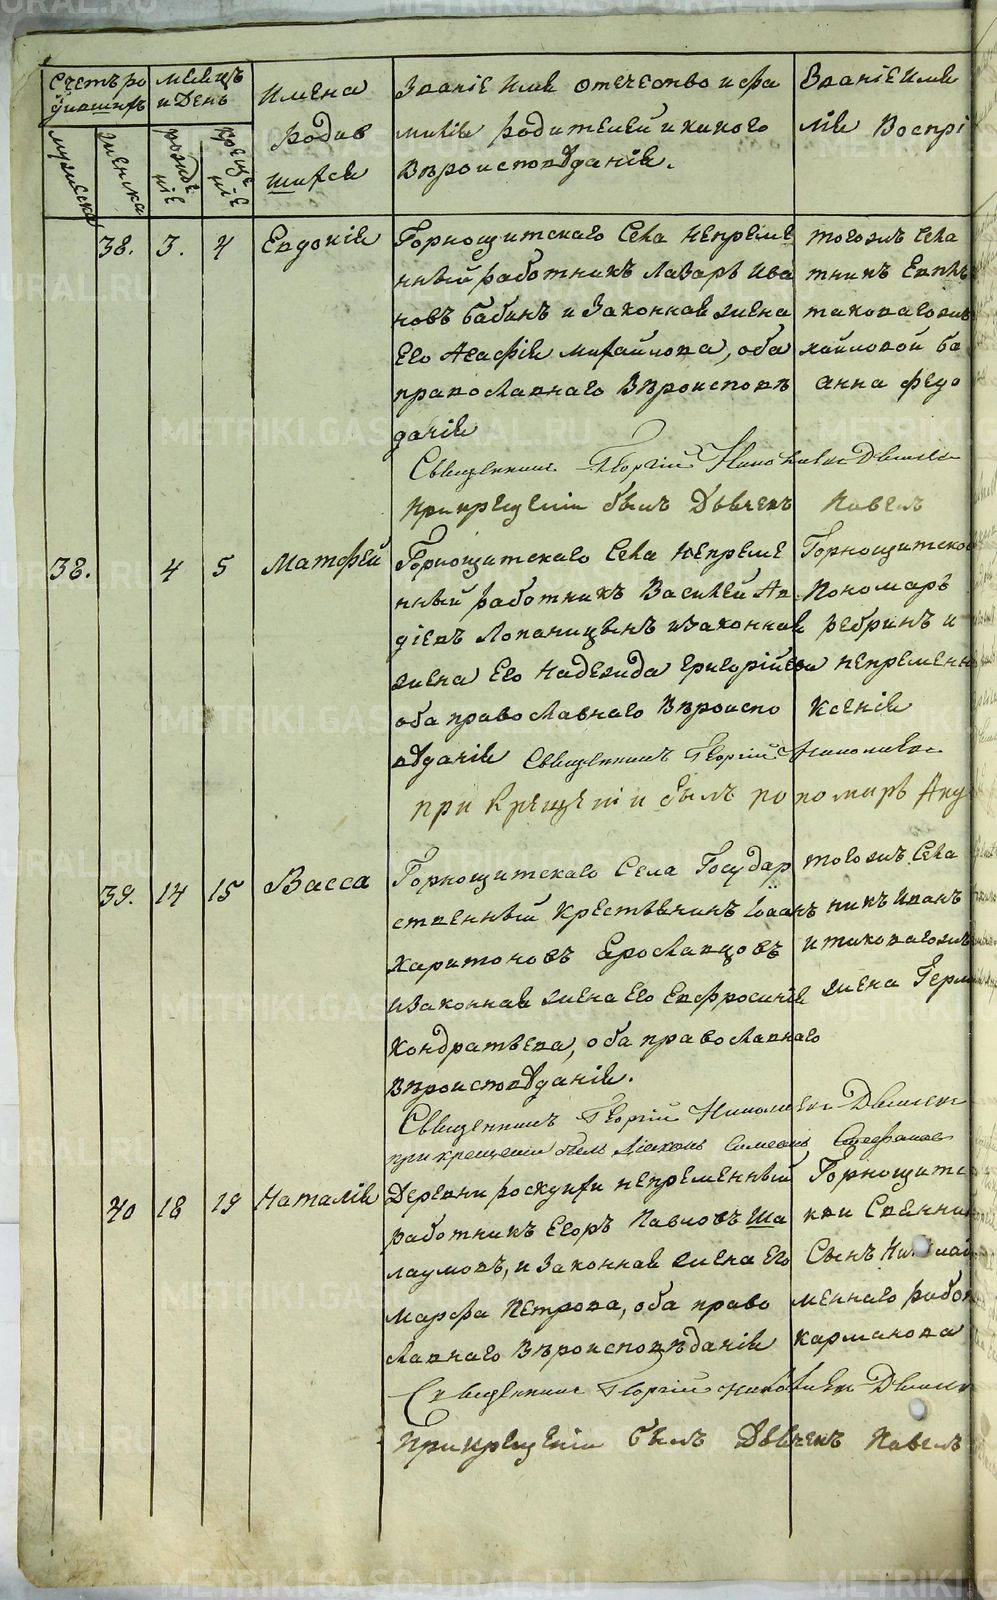 Счетъ ро
дившихъ
мужеска
женска
месяцъ
и День
рожде
нія
креще
нія
Имена
Родив
шихся
Званіе Имя отечество и фа
милія родителей и какого
Вѣроисповѣданія.
Званіе Имя
лія Воспрі
38. 3. 4 Евдокія
Горнощитскаго Села Непреме
нный работникъ Лазарь Ива
новъ Бабинъ и Законная жена
Его Агафія Михайлова, оба
православнаго Вѣроисповѣ
данія
Священникъ Георгій Николаевъ
При крещеніи былъ Дьячекъ Павелъ
тогожъ Села
тникъ
такова гожъ
хайловой ба
Анна Федо
38. 4 5 Матфей
Горнощитскаго Села Непреме
нный работникъ Василей Ав
діевъ и Законная
жена Его Надежда Григорійева
оба православнаго Вѣроиспо
вѣданія Священникъ Георгій Николаевъ
при крещеніи былъ пономарь
Горнощитской
Пономарь
ребринъ и
непременн
Ксенія
39. 14 15 Васса
Горнощитскаго Села Государ
ственный Крестьянинъ Іоаннъ
Харитоновъ Ярославцовъ
и Законная жена Его Евфросинія
Кондратьева, оба православнаго
Вѣроисповѣданія.
Священникъ Георгій Николаевъ
при крещеніи былъ Діаконъ Симеонъ
тогожъ Села
никъ Иванъ
и таковагожъ
жена Герм
40 18 19 Наталія
Деревни роскуихи непременный
работникъ Егоръ Павловъ Ша
лаумовъ, и Законная жена Его
Марфа Петрова, оба право
славнаго Вѣроисповѣданія
Священникъ Георгій Николаевъ
При крещеніи былъ Дьячекъ Павелъ
Горнощитс
кви Священни
Сынъ Николай
меннаго рабо
Карманова
METRIKI.GASO-URAL.RU